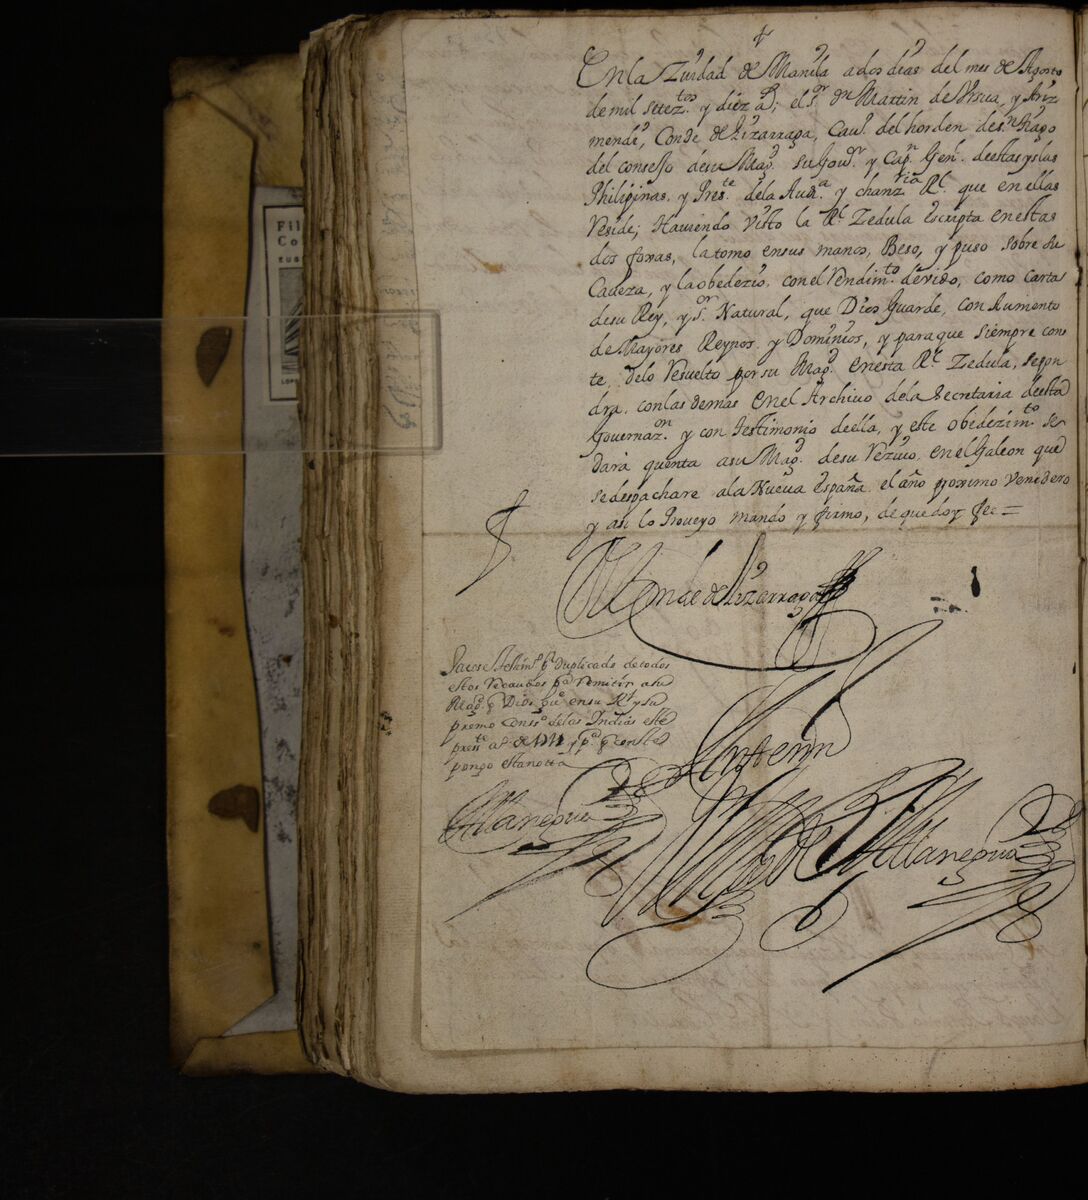 En la Zuidad de Manila a dos dias del mes de Agosto
de mil setez.tos y diez a.s; el s.r d.n Martin de Vrsua, y Ariz
mendi, Conde de Lizarraga, Cau.o del horden de s.n tiago
del consejo de su Mag.d su Gov.or y Cap.n Gen.l de estas yslas
Philipinas, y Pres.te de la Aud.a y chanz.ria R.l que en ellas
Reside; Hauiendo visto la R.l Zedula escripta en estas
dos foxas, la tomo en sus manos, Beso, y puso sobre su
Cabeza, y la obedezio, con el Rendim.to devido, como carta
de su Rey, y s.or Natural, que Dios Guarde, con Aumento
de Mayores Reynos y Dominios, y para que siempre cons
te, de lo Resuelto por su Mag.d en esta R.l Zedula, se pon
dra con las demas en el Archivo de la Secretaria de esta
Governaz.on y con testimonio de ella, y este obedezim.to se
dara quenta a su Mag.d de su Rezivo en el Galeon que
se despachare a la Nueua España el año proximo venidero
y asi lo Proveyo mando y firmo, de que doy fee =
El Conde de Lizarraga
Sacose testim.o p.r Duplicado de todos
estos Recaudos p.a Remitir a su
Mag.d q Dios g.e en su R.l y Su
premo Cons.o de las Indias este
pres.te a.o de 1711 y p.a q conste
pongo esta notta
Villanepua
Ante mi
de Villanepua
Fil
Co